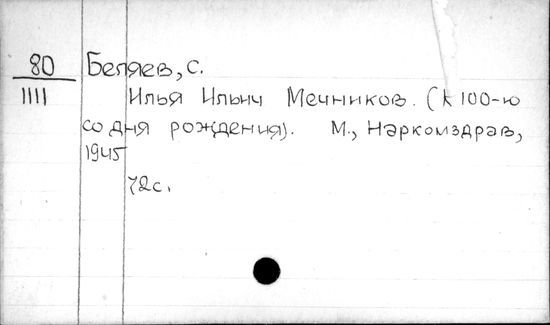 80 Беляев, С.
1111 Илья Ильич Мечников. (к 100-ю
со дня рождения). М., Наркомздрав,
1945
72с.